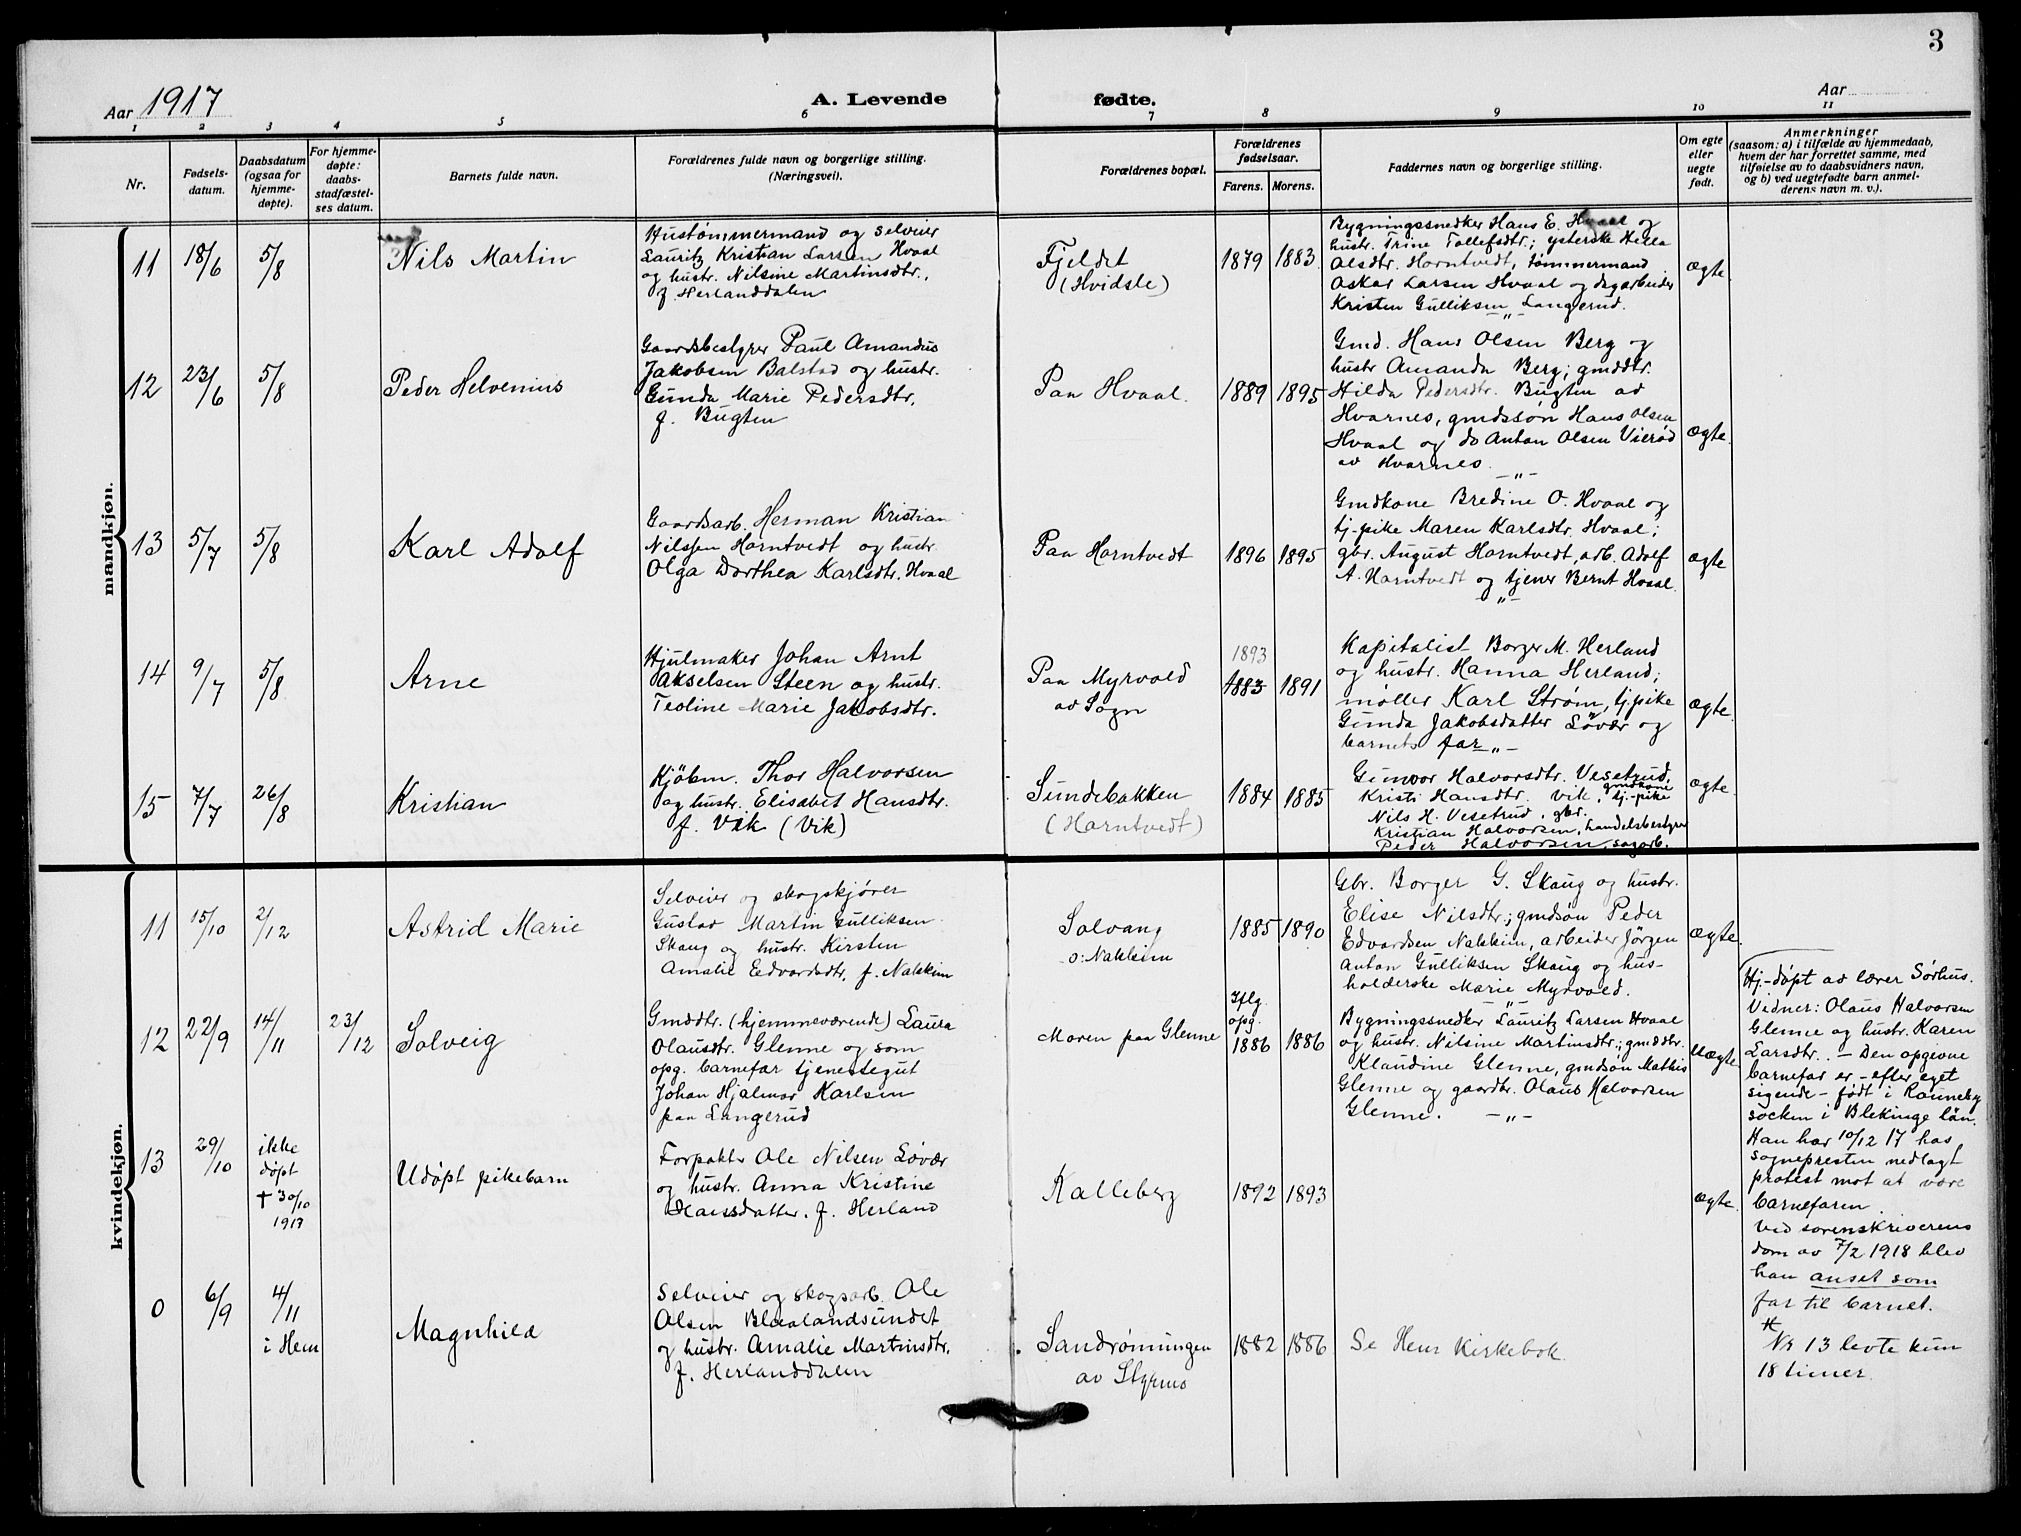 3
Aar 1917
A. Levende fødte.
Aar
1 2 3 4 5 6 7 8 9 10 11
Nr.
Fødsels-
datum.
Daabsdatum
(ogsaa for
hjemme-
døpte).
For hjemme-
døpte:
daabs-
stadfæstel-
ses datum.
Barnets fulde navn.
Forældrenes fulde navn og borgerlige stilling.
(Næringsvei).
Forældrenes bopæl.
Forældrenes
fødselsaar.
Farens. Morens.
Faddernes navn og borgerlige stilling.
Om egte
eller
uegte
født.
Anmerkninger
(saasom: a) i tilfælde av hjemmedaab,
hvem der har forrettet samme, med
tilføielse av to daabsvidners navn,
og b) ved uegtefødte barn anmel-
derens navn m. v.).
mandkjøn.
11 18/6 5/8
Nils Martin
Hustømmermand og selveier
Lauritz Kristian Larsen Hvaal
og hustr. Nilsine Martinsdtr.,
f. Herlanddalen
Fjeldet
(Hvidsle)
1879 1883
Bygningssnedker Hans E. Hvaal og
hustr. Trine Tollefsdtr.; ysterske Hella
Olsdtr. Horntvedt, tømmermand
Oskar Larsen Hvaal og dagarbeider
Kristen Gulliksen Langerud.
-"-
ægte
12 23/6 5/8
Peder Helvenius
Gaardsbestyrer Paul Amandus
Jakobsen Balstad og hustr.
Gunda Marie Pedersdtr,
f. Bugten
Paa Hvaal.
1889 1895
Gmd. Hans Olsen Berg og
hustr Amanda Berg; gmddtr.
Hilda Pedersdtr. Bugten av
Hvarnes, gmdssøn Hans Olsen
Hvaal og do Anton Olsen Vierød
av Hvarnes.
-"-
ægte
13 5/7 5/8
Karl Adolf
Gaardsarb. Herman Kristian
Nilssen Horntvedt og hustr.
Olga Dorthea Karlsdtr. Hvaal
Paa Horntvedt
1896 1895
Gmdkone Bredine O. Hvaal og
tj-pike Maren Karlsdtr. Hvaal;
gbr. August Horntvedt, arb. Adolf
A. Horntvedt og tjener Bernt Hvaal.
-"-
ægte
14 9/7 5/8
Arne
Hjulmaker Johan Arnt
Akselsen Steen og hustr.
Teoline Marie Jakobsdtr.
Paa Myrvold
av Sogn
1893
1883 1891
Kapitalist Borger M. Herland
og hustr. Hanna Herland;
møller Karl Strøm, tj.pike
Gunda Jakobsdatter Løvær og
barnets far -"-
ægte.
15 7/7 26/8
Kristian
Kjøbm. Thor Halvorsen
og hustr. Elisabet Hansdtr.
f. Vik (Vik)
Sundebakken
(Horntvedt)
1884 1885
Gunvor Halvorsdtr. Vesetrud, gmdkone
Kristi Hansdtr. Vik, tj.-pike
Nils H. Vesetrud, gbr.
Kristian Halvorsen, handelsbestyrer
Peder Halvorsen, sagarb.
ægte.
kvindekjøn.
11 15/10 2/12
Astrid Marie
Selveier og skogskjører
Gustav Martin Gulliksen
Skaug og hustr. Kirsten
Amalie Edvardsdtr, f. Nakkim
Solvang
o: Nakkim
1885 1890
Gbr. Borger G. Skaug og hustr.
Elise Nilsdtr.; gmdsøn Peder
Edvardsen Nakkim, arbeider Jørgen
Anton Gulliksen Skaug og hus-
holderske Marie Myrvold.
-"-
ægte.
12 22/9 14/11 23/12
Solveig
Gmddtr. (hjemmeværende) Laura
Olausdtr. Glenne og som
opg. barnefar tjenestegut
Johan Hjalmar Karlsen
paa Langerud
Moren paa Glenne
Iflg.
opg.
1886 1886
Bygningssnedker Lauritz Larsen Hvaal
og hustr. Nilsine Martinsdtr.; gmddtr.
Klaudine Glenne, gmdsøn Mathis
Glenne og gaardbr. Olaus Halvorsen
Glenne. -"-
Uægte
Hj-døpt av lærer Sørhus.
Vidner: Olaus Halvorsen
Glenne og hustr. Karen
Larsdtr. - Den opgivne
barnefar er - efter eget
sigende - født i Ronneby
socken i Blekinge län.
Han har 10/12 17 hos
sognepresten nedlagt
protest mot at være
barnefaren.
Ved sorenskriverens
dom av 7/2 1918 blev
han anset som
far til barnet.
13 29/10
ikke
døpt
† 30/10
1917
Udøpt pikebarn
Forpakter Ole Nilsen Løvær
og hustr. Anna Kristine
Klausdatter. f. Herland
Kalleberg
1892 1893
ægte.
Nr 13 levte kun
18 timer.
0 6/9 4/11
i Hem
Magnhild
Selveier og skogsarb. Ole
Olsen Blaalandsundet
og hustr. Amalie Martinsdtr.
f. Herlanddalen
Sandrønningen
av Styrmo
1882 1886
Se Hem Kirkebok.